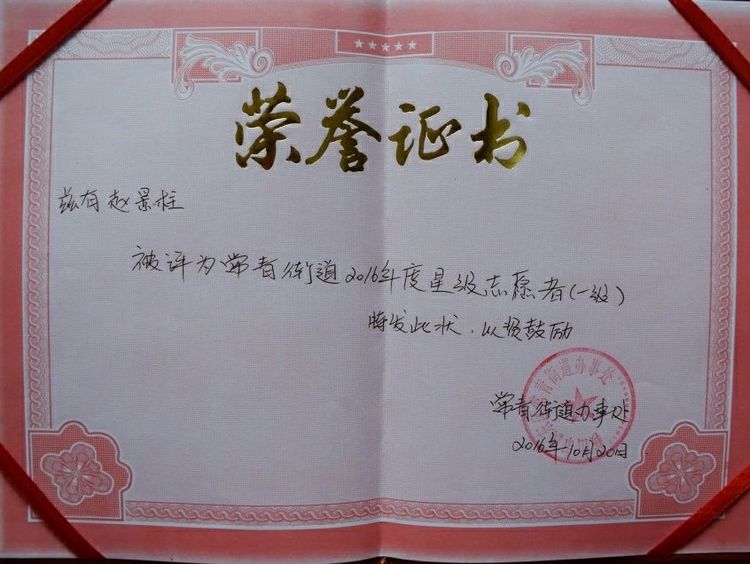 荣誉证书
兹有赵景柱
被评为常青街道2016年度星级志愿者(一级)
特发此状.以资鼓励
常青街道办事处
2016年10月20日